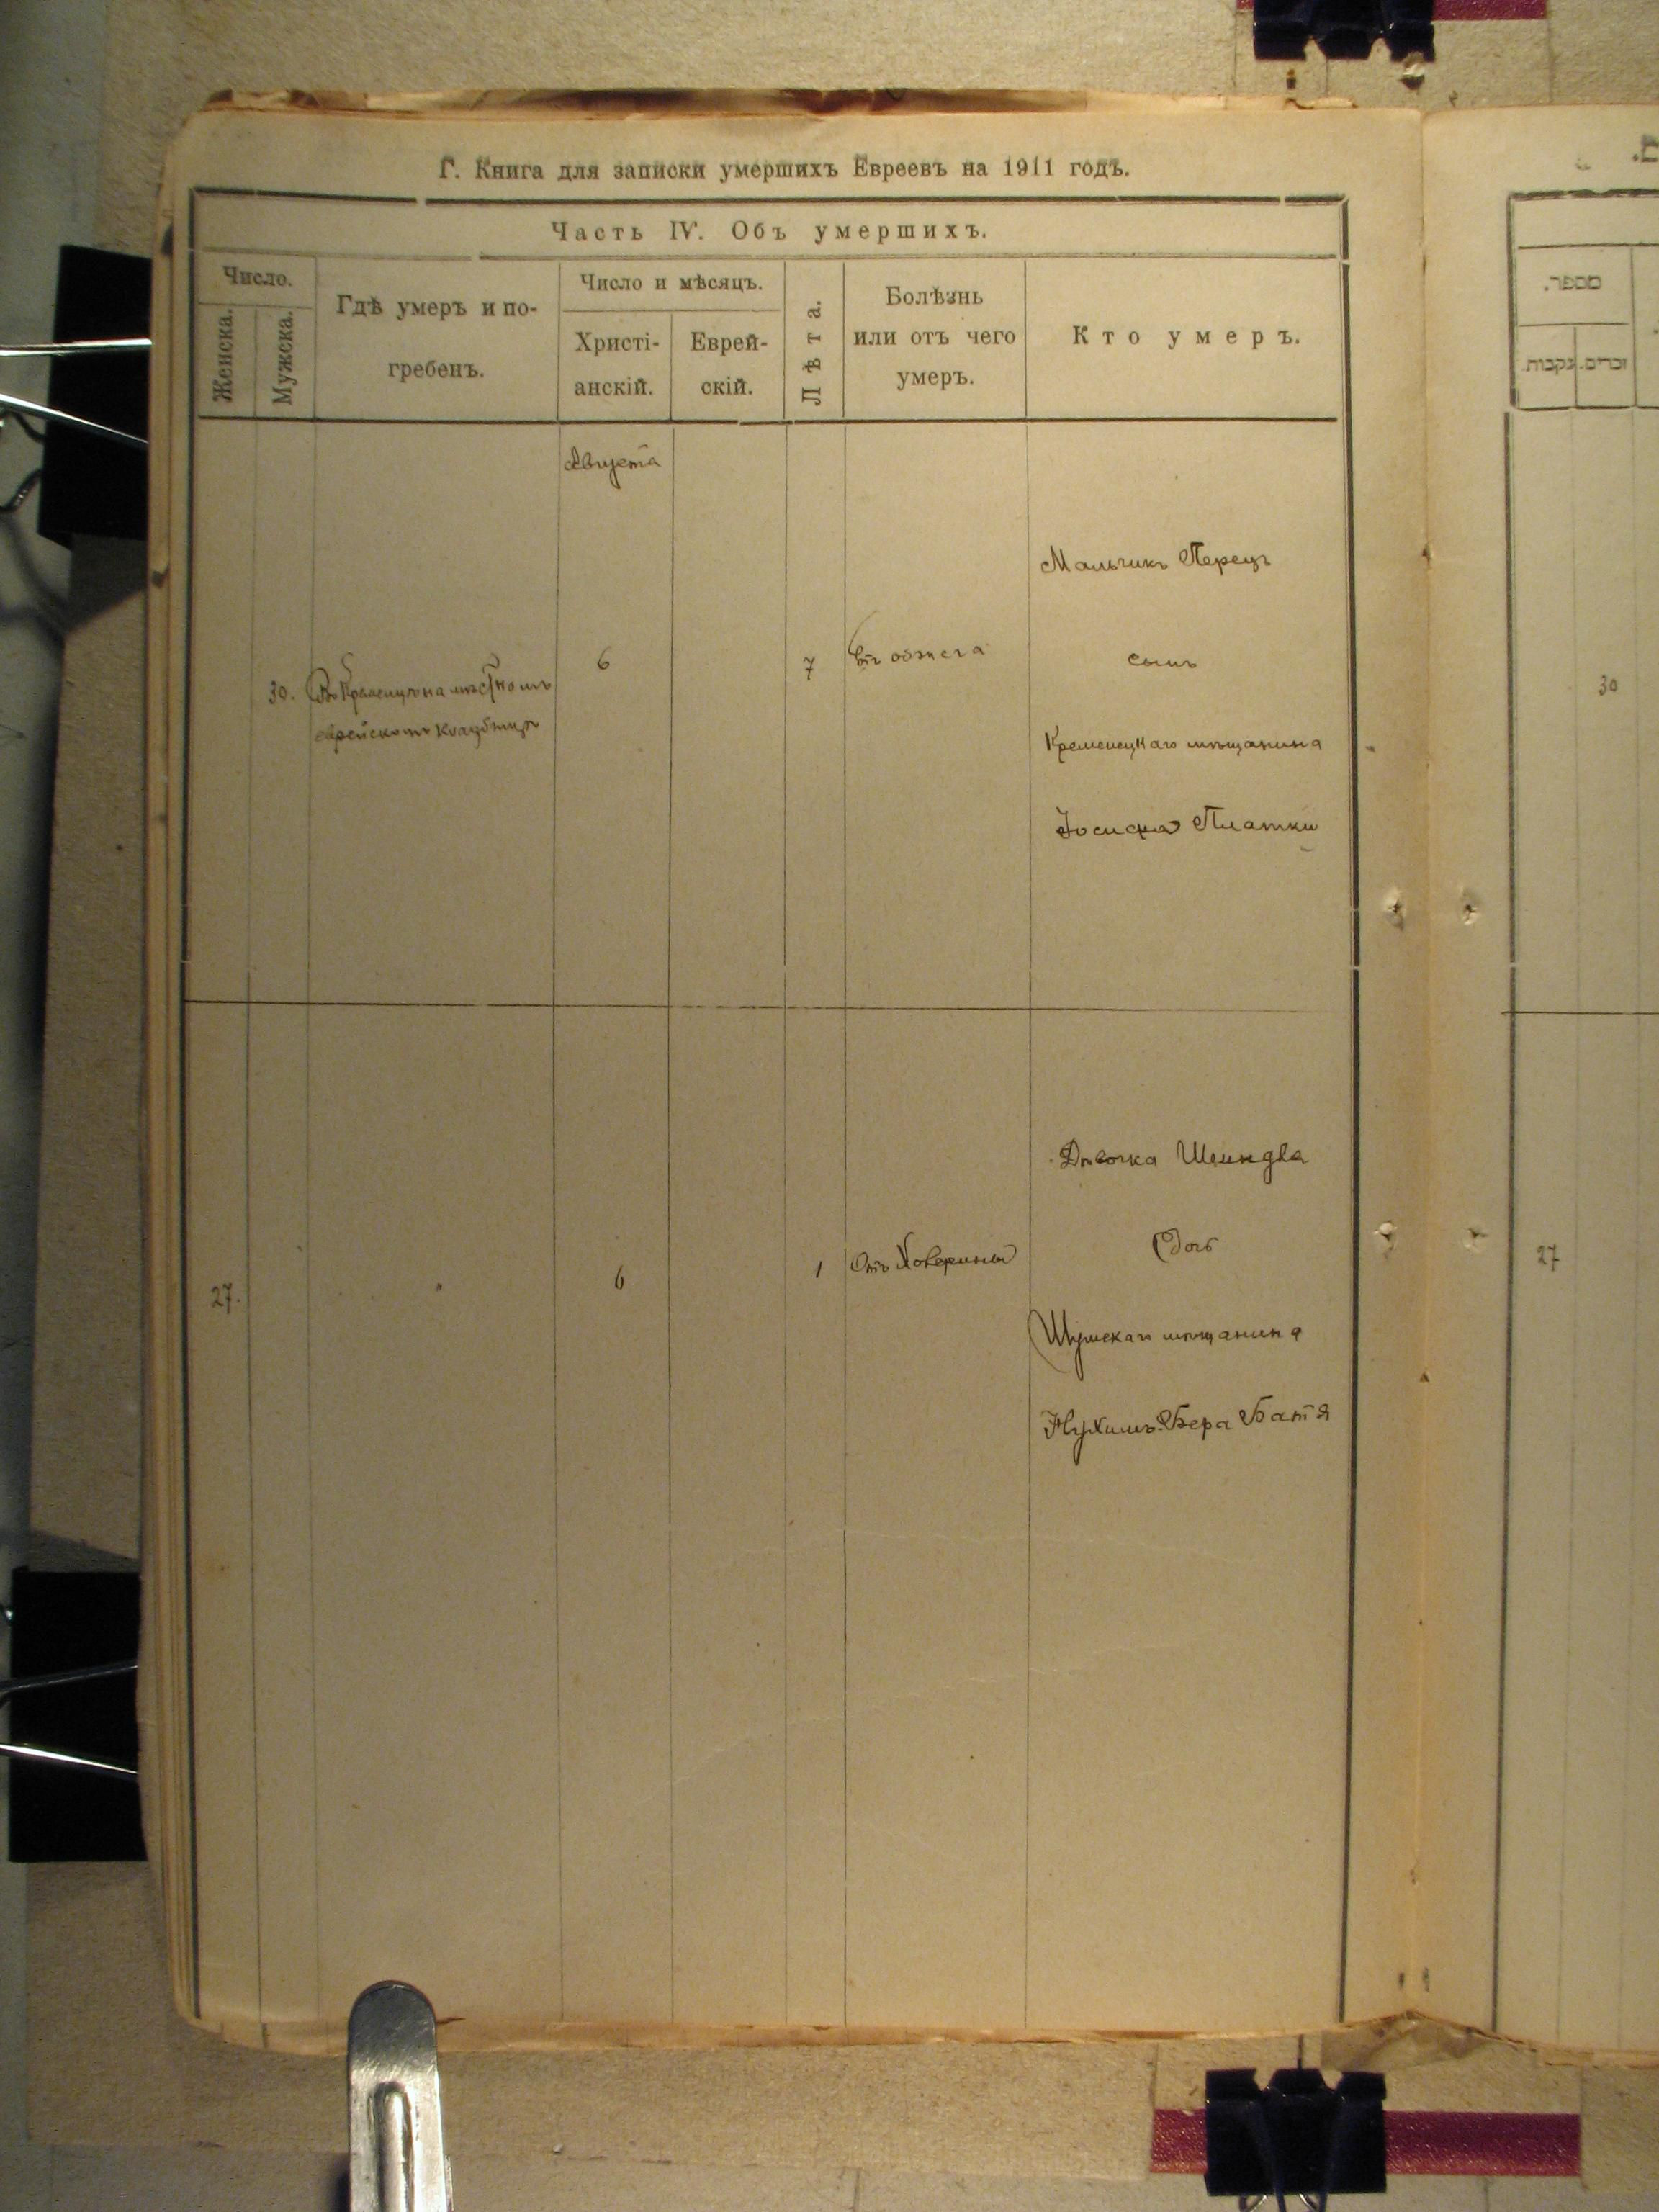 Г. Книга для записки умершихъ Евреевъ на 1911 годъ.
Часть IV. Объ умершихъ.
Число.
Женска.
Мужска.
Гдѣ умеръ и по-
гребенъ.
Число и мѣсяцъ.
Христі-
анскій.
Еврей-
скій.
Лѣта.
Болѣзнь
или отъ чего
умеръ.
Кто умеръ.
Августа
30.
Въ Кременцѣ на мѣстномъ
еврейскомъ кладбищѣ
6
7
Отъ обжега
Мальчикъ Перецъ
сынъ
Кременецкаго мѣщанина
Іосифа Платки
27.
"
6
1
Отъ Холерины
Дѣвочка Шеиндля
Дочь
Шумскаго мѣщанина
Нухимъ-Бера Батя
מספר.
נקבות.
זכרים.
30
27